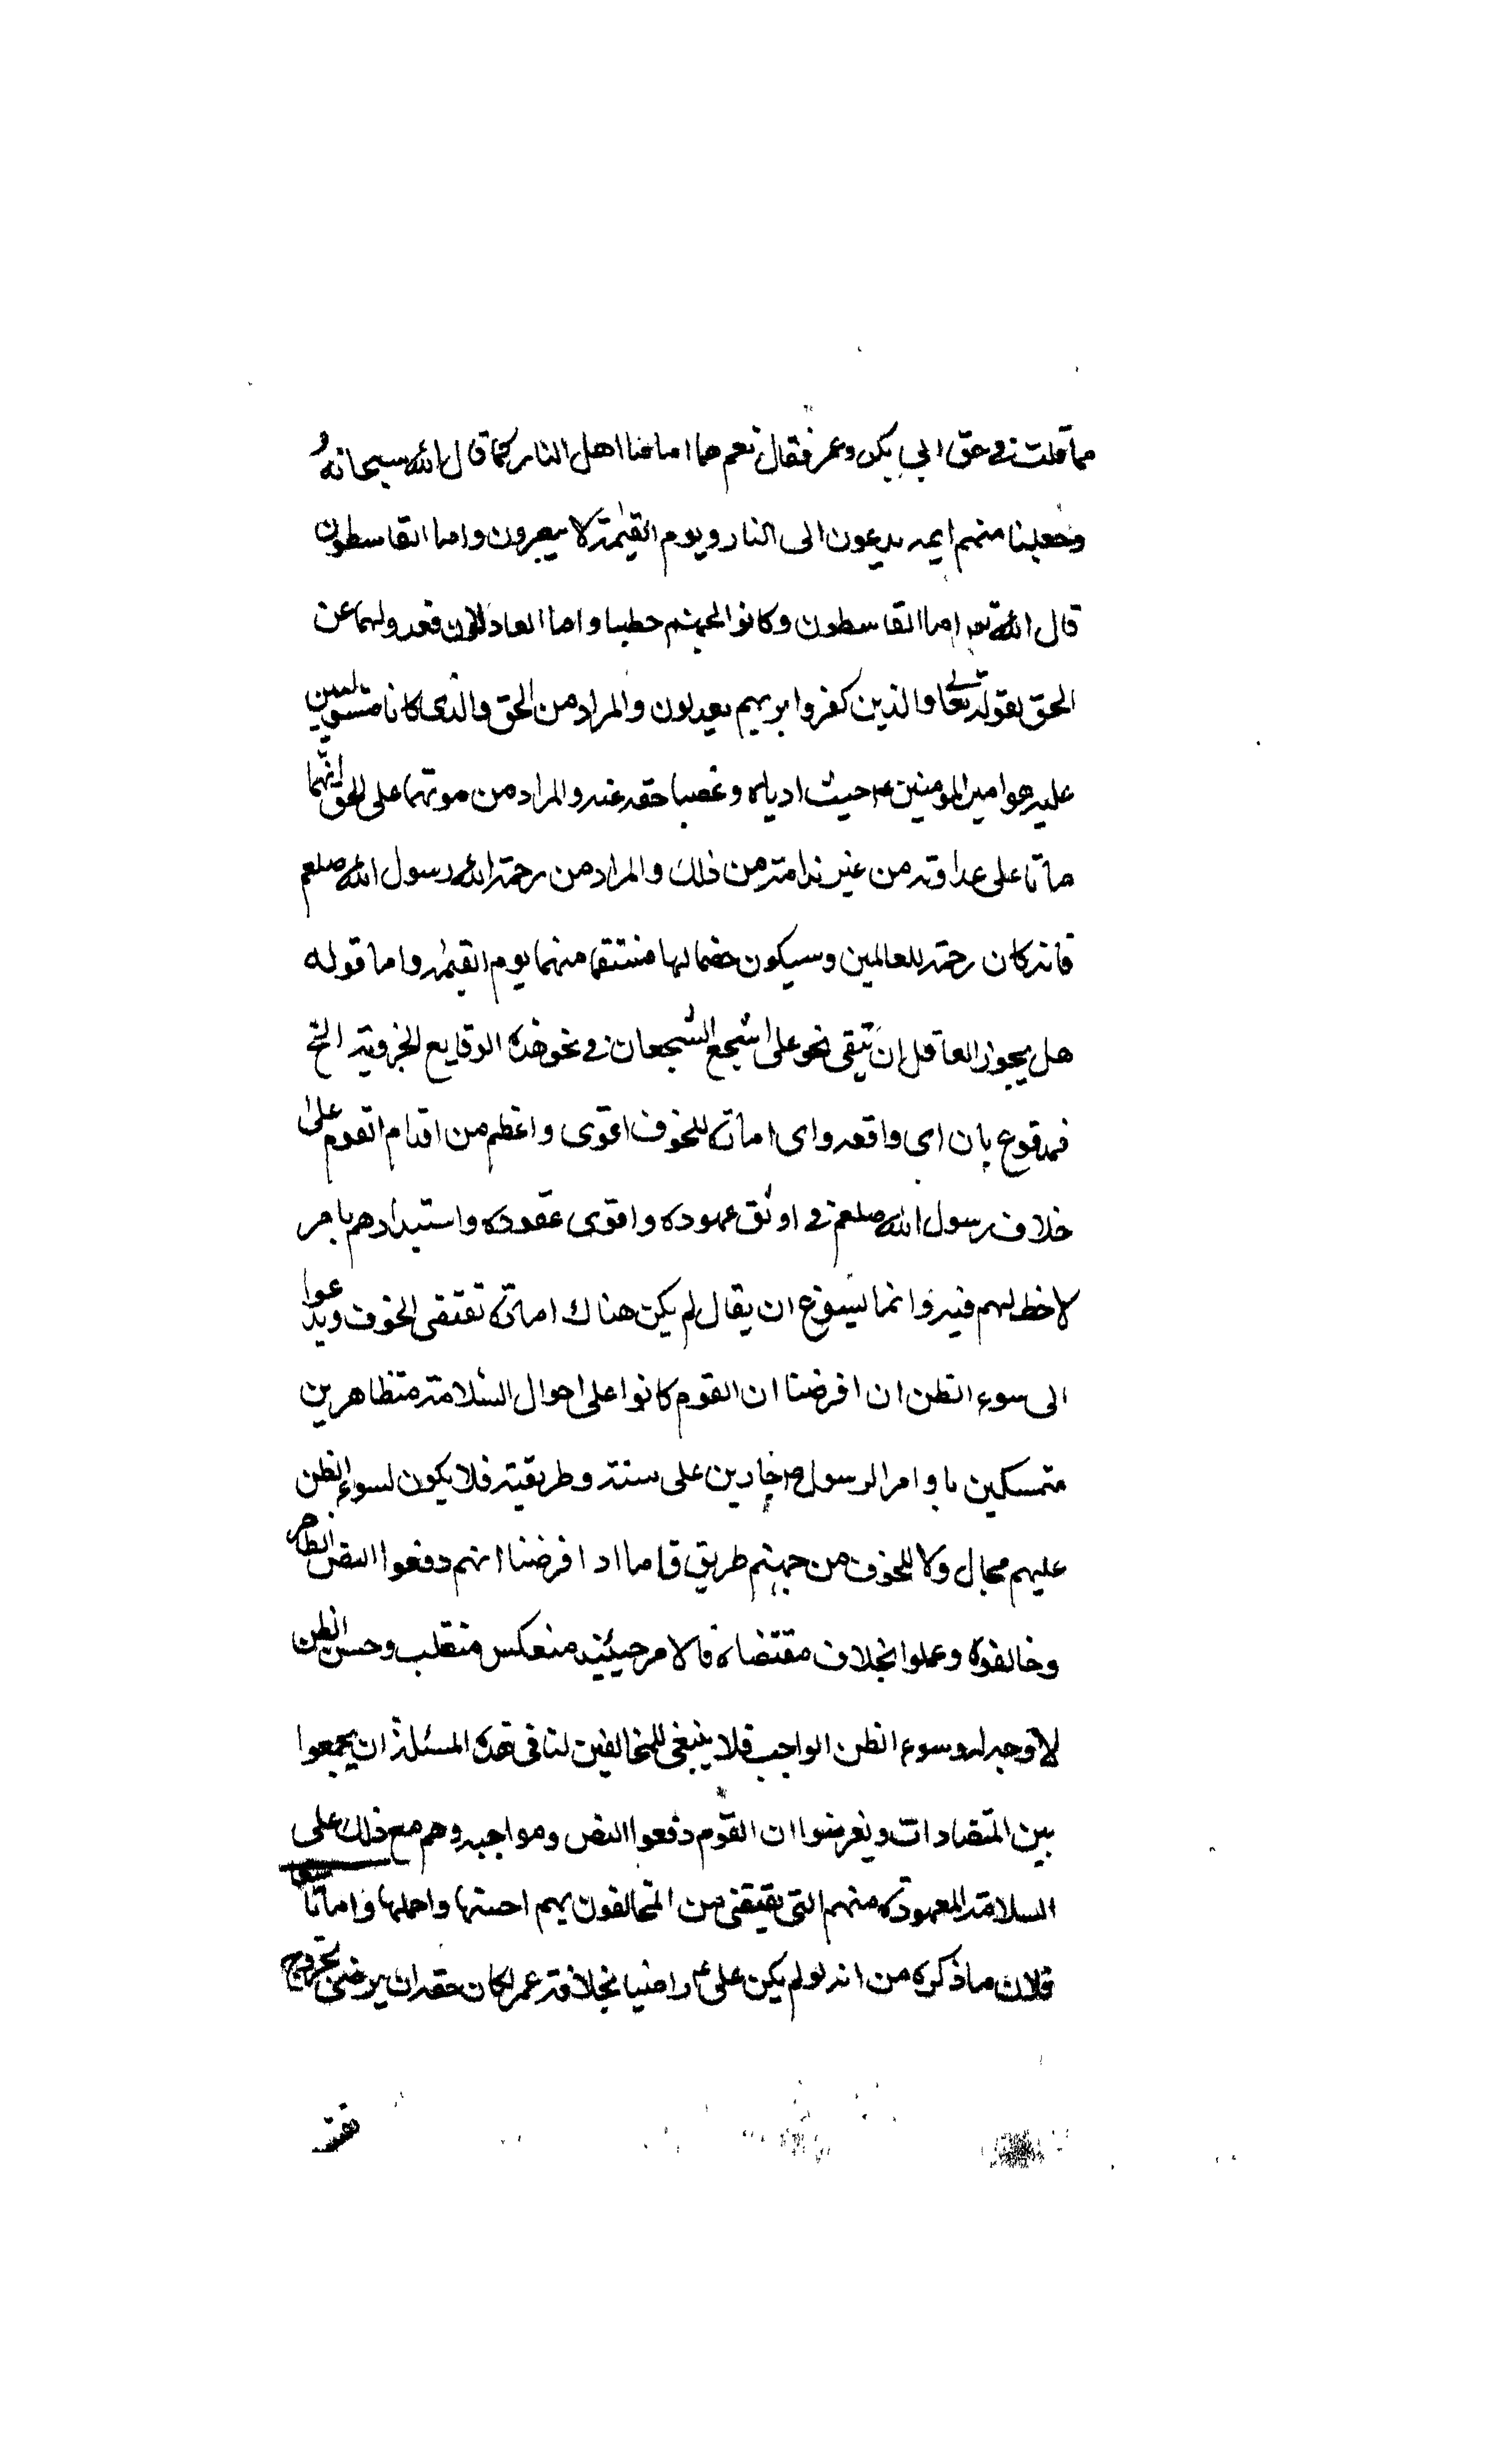 مما قلت في حق ابي بكر وعمر فقال نعم هما اماما اهل النار كما قال الله سبحانه و
وجعلنا منهم ايمه يدعون الى النار ويوم القيمة لا ينصرون واما القاسطون
قال الله تعه اما القاسطون وكانوا لجهنم حطبا واما العادلان فعدولهما عن
الحق بقوله تعالى والذين كفروا بربهم يعدلون والمراد من الحق والذى كانا مستولين
عليه هو امير المومنين ع حيث اذياه وغصبا حقه عنه والمراد من موتهما على الحق انهما
ماتا على عداوته من غير ندامة من ذلك والمراد من رحمة الله رسول الله صلعم
فانه كان رحمة للعالمين وسيكون خصما لهما منتقما منهما يوم القيمه واما قوله
هل يجوز العاقل ان تبقى نحو على اشجع الشجعان في نحو هذه الوقايع الجزوية الخ
فمدفوع بان اى واقعه واى امارة للخوف اقوى واعظم من اقدام القوم على
خلاف رسول الله صلعم في اوثق عهوده واقوى عقوده واستبدادهم بامر
لا حظ لهم فيه وانما يسوغ ان يقال لم يكن هناك امارة تقتضى الخوف ويدعوا
الى سوء الظن ان افرضنا ان القوم كانوا على احوال السلامة متظاهرين
متمسكين باوامر الرسول ص جارين على سنته وطريقته فلا يكون لسوء الظن
عليهم مجال ولا للخوف من جهتهم طريق فاما اذا فرضنا انهم دفعوا النص الظاهر
وخالفوه وعملوا بخلاف مقتضاه فالامر حينئذ منعكس منقلب وحسن الظن
لا وجه له وسوء الظن الواجب فلا ينبغى للمخالفين لنا فى هذه المسئلة ان يجمعوا
بين المتضادات ويفرضوا ان القوم دفعوا النص ومواجبه وهم مع ذلك على
السلامة المعهودة منهم التى يقتضى من المخالفون بهم احسنها واجملها واما تاسعا
فلان ما ذكره من انه لو لم يكن على ع راضيا بخلافة عمر لكان حقه ان يرضى بخروج